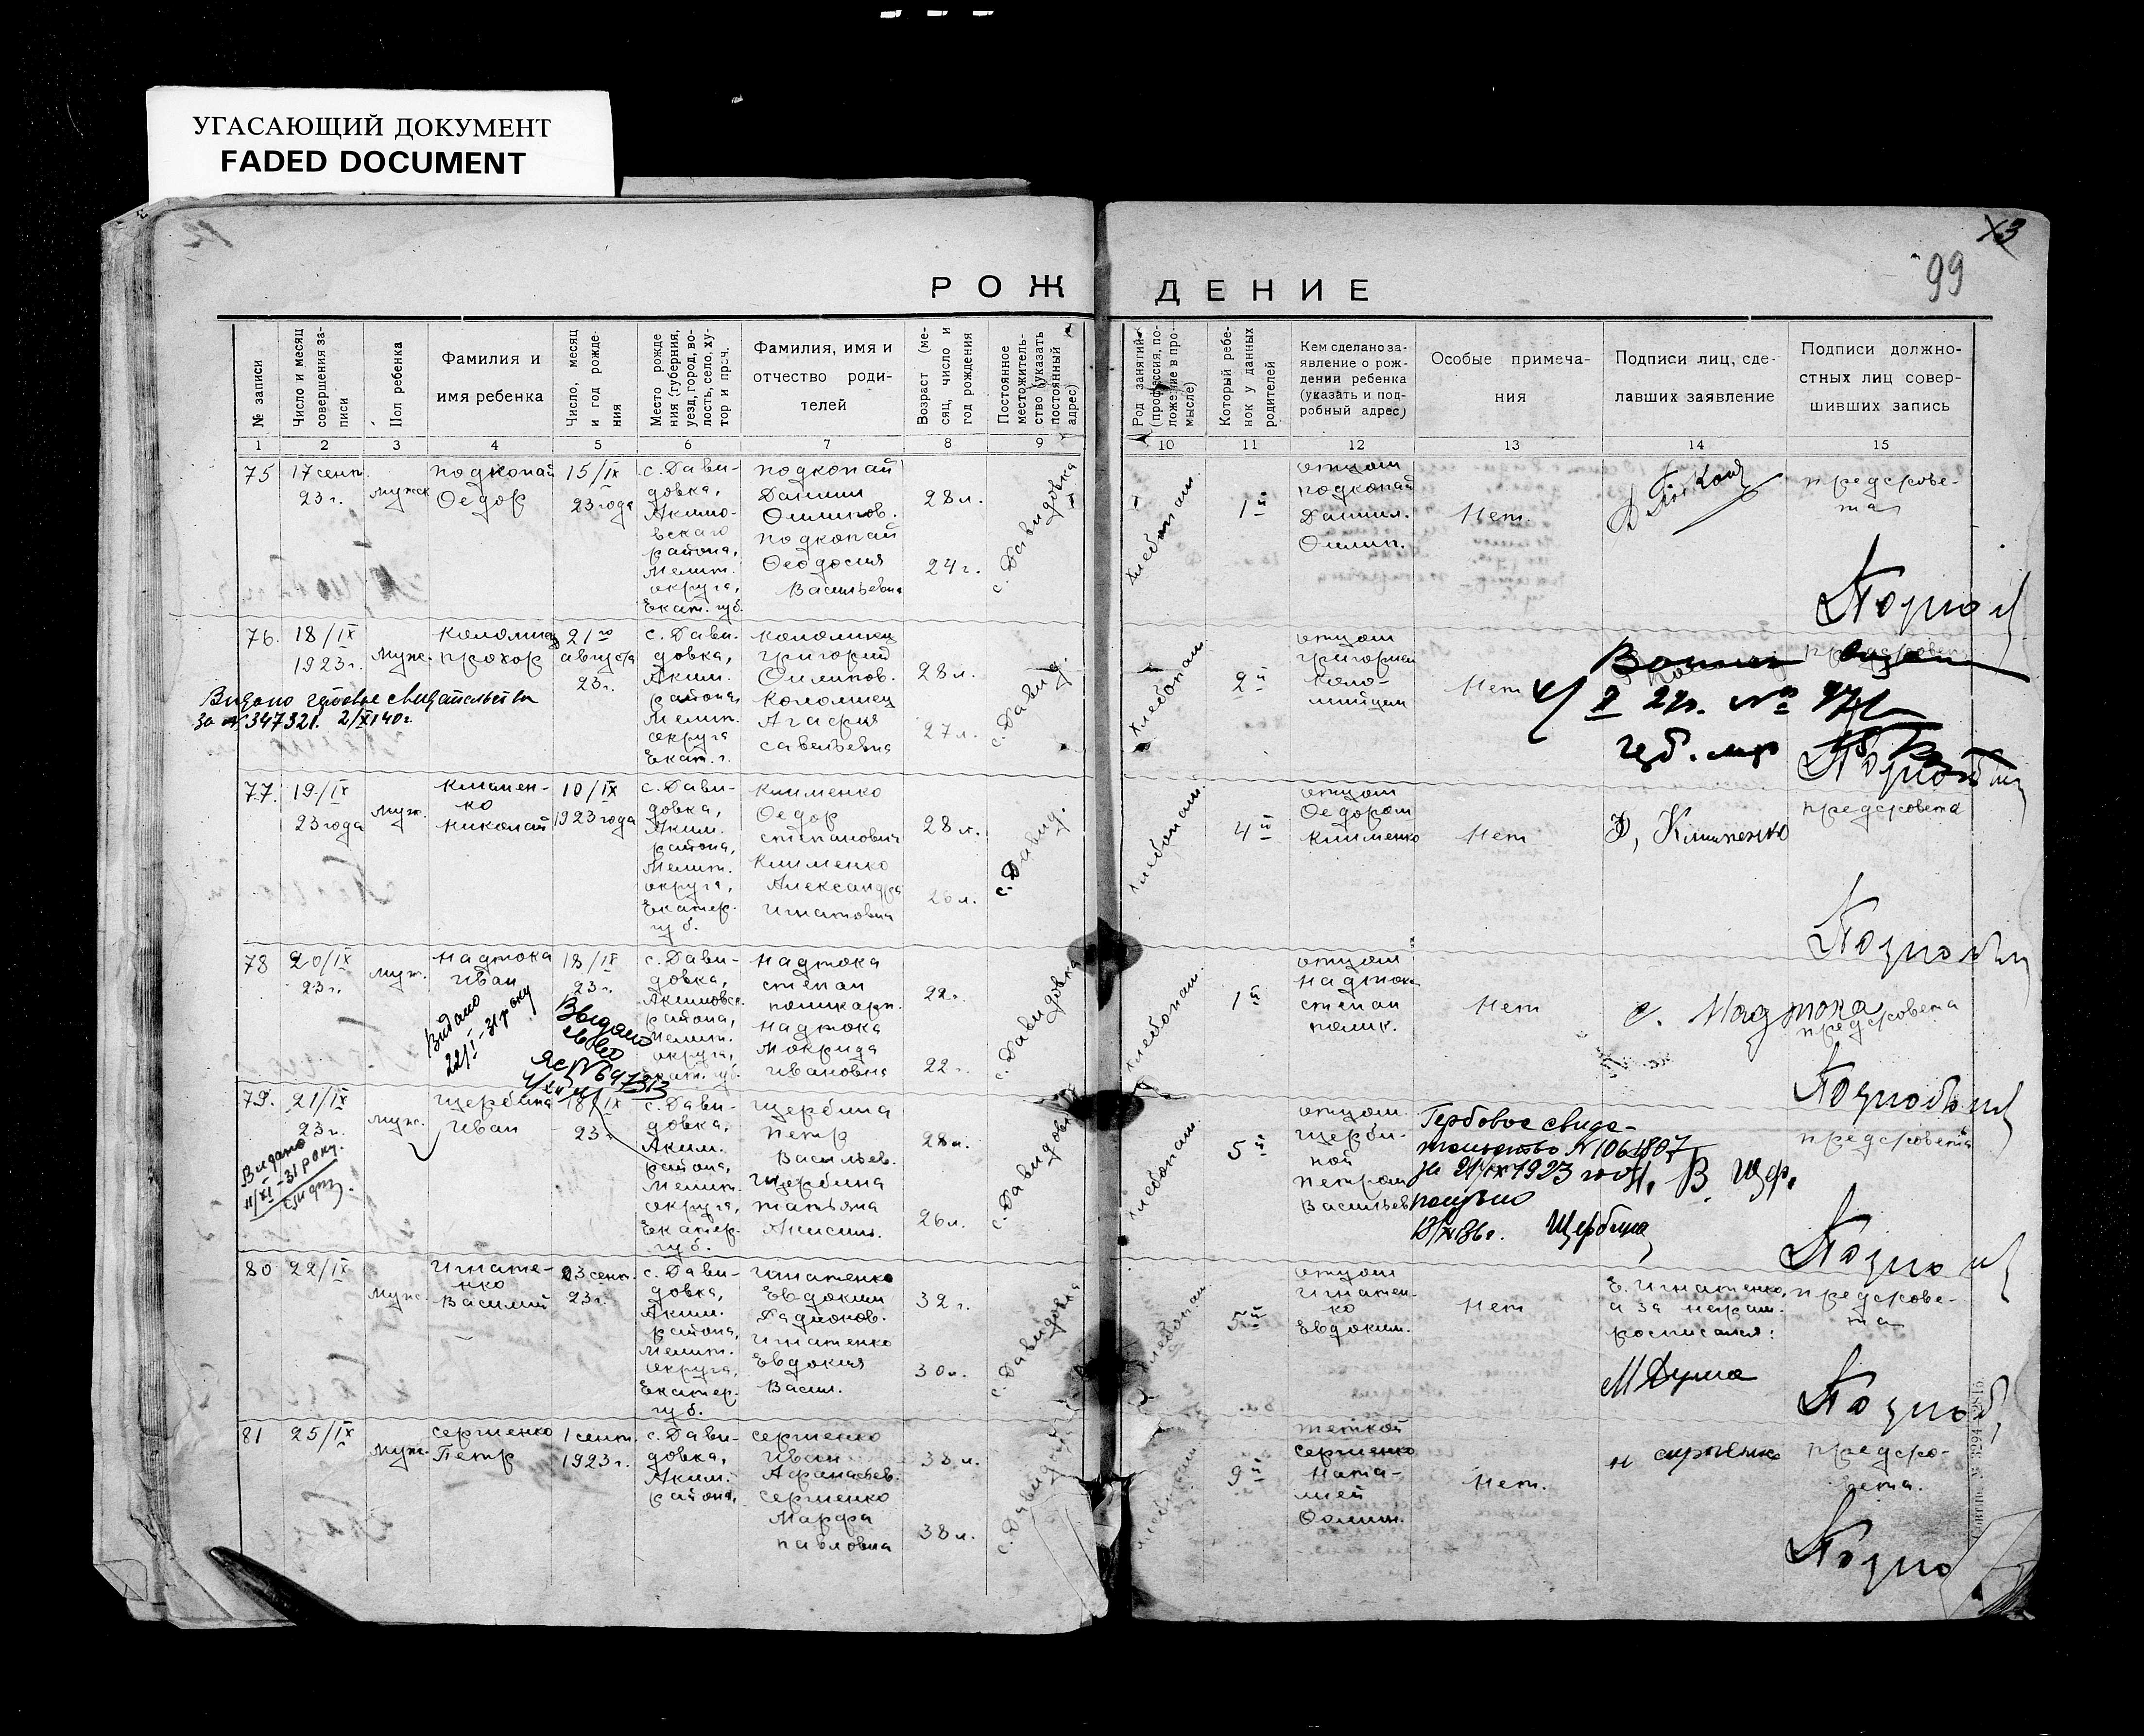 УГАСАЮЩИЙ ДОКУМЕНТ
FADED DOCUMENT
99
РОЖДЕНИЕ
№ записи
Число и месяц
совершения за-
писи
Пол ребенка
Фамилия и
имя ребенка
Число, месяц
и год рожде-
ния
Место рожде
ния (губерния,
уезд, город, во-
лость, село, ху-
тор и проч.
Фамилия, имя и
отчество роди-
телей
Возраст (ме-
сяц, число и
год рождения
Постоянное
местожитель-
ство (указать
постоянный
адрес)
Род занятий
(профессия, по-
ложение в про-
мысле)
Который ребе-
нок у данных
родителей
Кем сделано за-
явление о рож-
дении ребенка
(указать и под-
робный адрес)
Особые примеча-
ния
Подписи лиц, сде-
лавших заявление
Подписи должно-
стных лиц совер-
шивших запись
1 2 3 4 5 6 7 8 9 10 11 12 13 14 15
75
17 сент.
23 г.
мужск
Подкопай
Федор
15/IX
23 года
с. Дави-
довка,
Акимо-
вского
района,
Мелит.
округа,
Екат. губ.
Подкопай
Даниил
Филипов.
Подкопай
Феодосия
Васильевна
28 л.
24 г.
с. Давидовка
хлебопаш.
1й
отцом
Подкопай
Даниил.
Филип.
Нет.
предсове-
та
76.
18/IX
1923 г.
муж.
Коломиец
Прохор
21го
августа
23 г.
с. Дави.
довка,
Аким.
района
Мелит.
округа
Екат. г.
Коломиец
Григорий
Филипов.
Коломиец
Агафия
Савельевна
28 л.
27 л.
с. Давид.
хлебопаш.
2й
отцом
Григорием
Коло-
мийцем
Нет
Видано гербове свидетельство
за № 347321. 2/XI 40 г.
77.
19/IX
23 года
муж.
Климен-
ко
Николай
10/IX
1923 года
с. Дави-
довка,
Аким.
района,
Мелит.
округа,
Екатер.
губ.
Клименко
Федор
Степанович
Клименко
Александра
Игнатовна
28 л.
26 л.
с. Давид.
хлебопаш.
4й
отцом
Федором
Клименко
Нет
Ф, Клименко
предсовета
78
20/IX
23 г.
муж.
Надтока
Иван
18/IX
23 г.
с. Дави-
довка,
Акимовск.
района,
Мелит.
округа,
Екат. губ.
Надтока
Степан
Поликарп.
Надтока
Мокрида
Ивановна
22 г.
22 г.
с. Давидовка
хлебопаш.
1й
отцом
Надтока
Степан
Полик.
Нет
С. Надтока
предсовета
Видано
22/I-31 року
79.
21/IX
23 г.
муж.
Щербина
Иван
18/IX
23 г.
с. Дави-
довка,
Аким.
района,
Мелит.
округа,
Екатер.
губ.
Щербина
Петр
Васильев.
Щербина
Татьяна
Анисим.
28 л.
26 л.
с. Давидовка
хлебопаш.
5й
отцом.
Щерби-
ной
Петром
Васильев
Гербовое свиде-
тельство N 1061807
на 21/IX 1923 года
получено
Щербина
предсовета
Видано
11/XI-31 року.
80
22/IX
муж.
Игнате-
нко
Василий
23 г.
с. Дави-
довка,
Аким.
района,
Мелит.
округа,
Екатер.
губ.
Игнатенко
Евдоким
Радионов.
Игнатенко
Евдокия
Васил.
32 г.
30 л.
с. Давидовка
хлебопаш
5й
отцом
Игнатен-
ко
Евдоким.
Нет
Е. Игнатенко,
а за неграм.
росписался:
М Дума
предсове-
та
81
25/IX
муж.
Сергиенко
Петр
1 сент.
1923 г.
с. Дави-
довка,
Аким.
района,
Сергиенко
Иван
Афанасьев.
Сергиенко
Марфа
Павловна
38 л.
38 л.
с. Давидовка
хлебопаш
9й
теткой
Сергиенко
Ната-
лией
Филип.
Нет.
предсо-
вета.